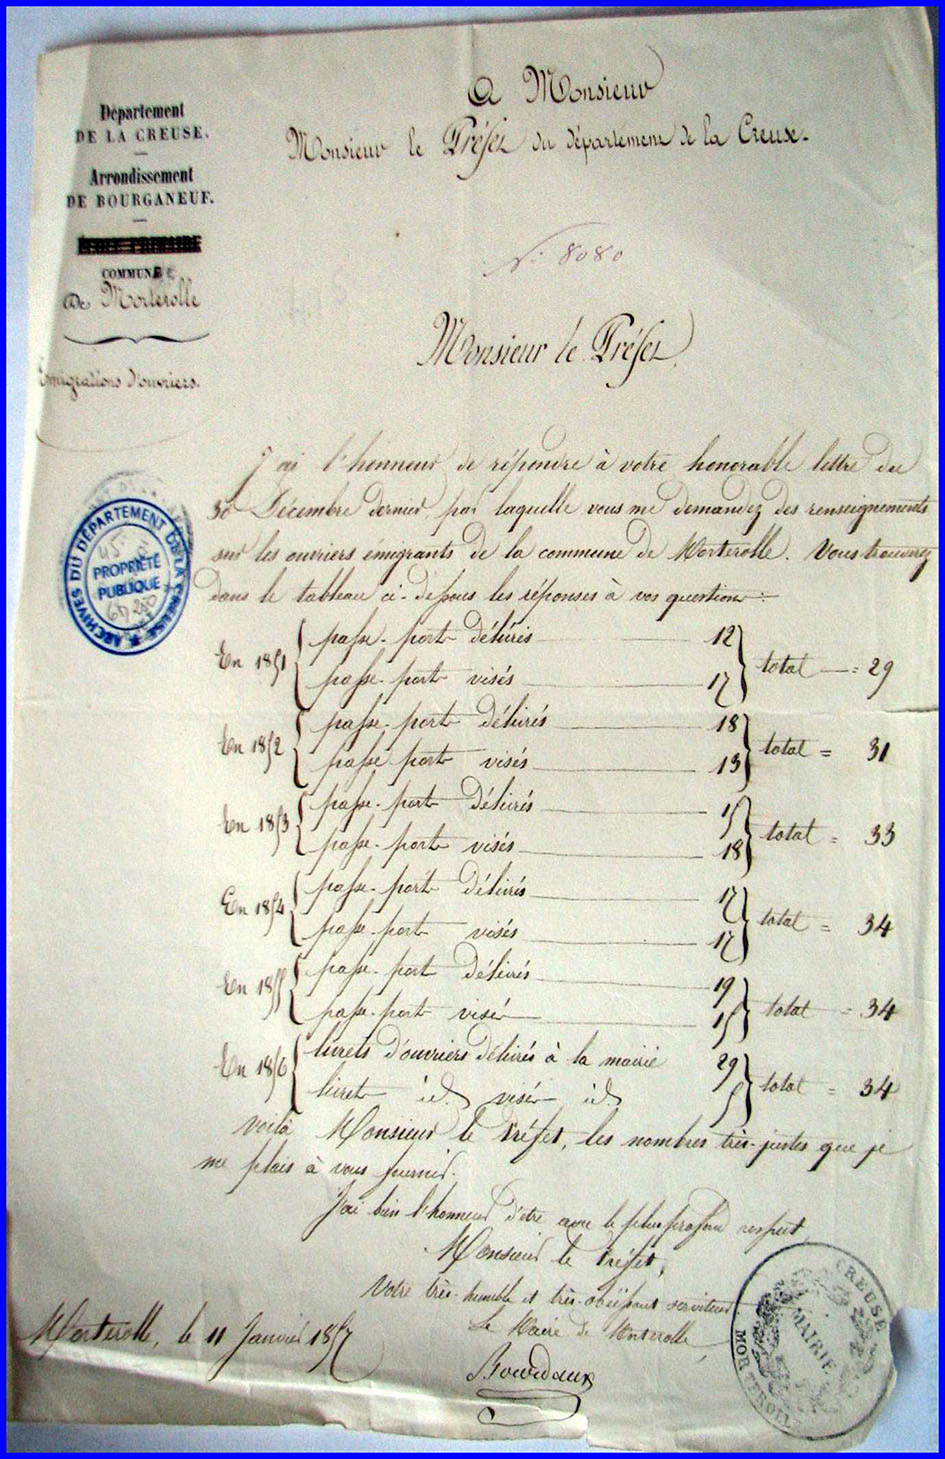 Département
DE LA CREUSE.
Arrondissement
DE BOURGANEUF.
ÉCOLE PRIMAIRE
COMMUNE
De Morterolle
Emigrations d'ouvriers.
A Monsieur
Monsieur le Préfet du département de la Creuse.
N° 8080
Monsieur le Préfet,
J'ai l'honneur de répondre à votre honorable lettre du
30 Décembre dernier, par laquelle vous me demandez des renseignements
sur les ouviers émigrants de la commune de Morterolle. Vous trouverez
dans le tableau ci-dessous les réponses à vos questions :
ARCHIVES DU DÉPARTEMENT DE LA CREUSE
PROPRIÉTÉ
PUBLIQUE
En 1851 { passe-port délivrés 12 } total = 29
passe-port visés 17
En 1852 { passe-port délivrés 18 } total = 31
passe port visés 13
En 1853 { passe-port délivrés 15 } total = 33
passe-port visés 18
En 1854 { passe-port délivrés 17 } total = 34
passe-port visés 17
En 1855 { passe-port délivrés 19 } total = 34
passe-port visés 15
En 1856 { livrets d'ouvriers délivrés à la mairie 29 } total = 34
livret id. visés id. 5
Voilà Monsieur le Préfet, les nombres très-justes que je
me plais à vous fournir.
J'ai bien l'honneur d'être avec le plus profond respect,
Monsieur le Préfet,
Votre très-humble et très-obéissant serviteur.
Le Maire de Morterolle,
Morterolle, le 11 Janvier 1857
Bourdaux
MAIRIE
MORTEROLLE
CREUSE